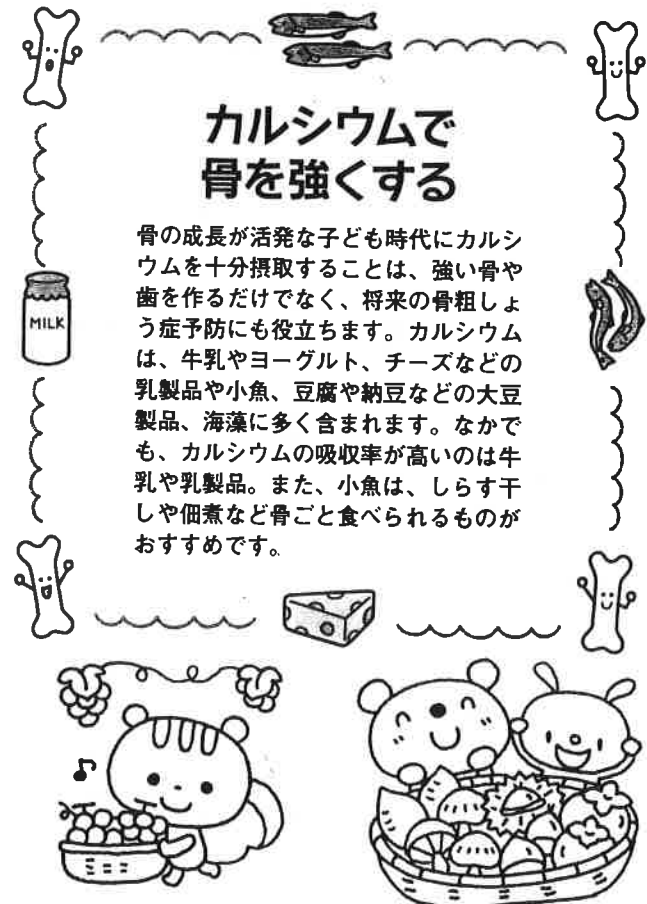 カルシウムで
骨を強くする
骨の成長が活発な子ども時代にカルシ
ウムを十分摂取することは、強い骨や
歯を作るだけでなく、将来の骨粗しょ
う症予防にも役立ちます。カルシウム
は、牛乳やヨーグルト、チーズなどの
乳製品や小魚、豆腐や納豆などの大豆
製品、海藻に多く含まれます。なかで
も、カルシウムの吸収率が高いのは牛
乳や乳製品。また、小魚は、しらす干
しや佃煮など骨ごと食べられるものが
おすすめです。
MILK